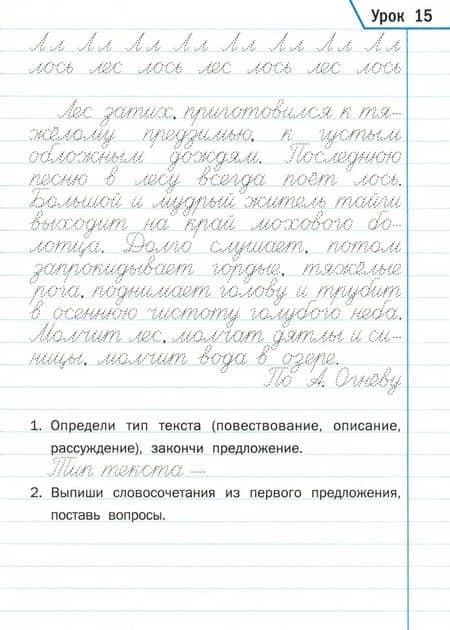 Урок 15
Ал Ал Ал Ал Ал Ал Ал Ал
лось лес лось лес лось лес лось
Лес затих, приготовился к тя-
жёлому предзимью, к густым
обложным дождям. Последнюю
песню в лесу всегда поёт лось.
Большой и мудрый житель тайги
выходит на край мохового бо-
лотца. Долго слушает, потом
запрокидывает гордые, тяжёлые
рога, поднимает голову и трубит
в осеннюю чистоту голубого неба.
Молчит лес, молчат дятлы и си-
ницы, молчит вода в озере.
По А. Огневу
1. Определи тип текста (повествование, описание,
рассуждение), закончи предложение.
Тип текста ....
2. Выпиши словосочетания из первого предложения,
поставь вопросы.